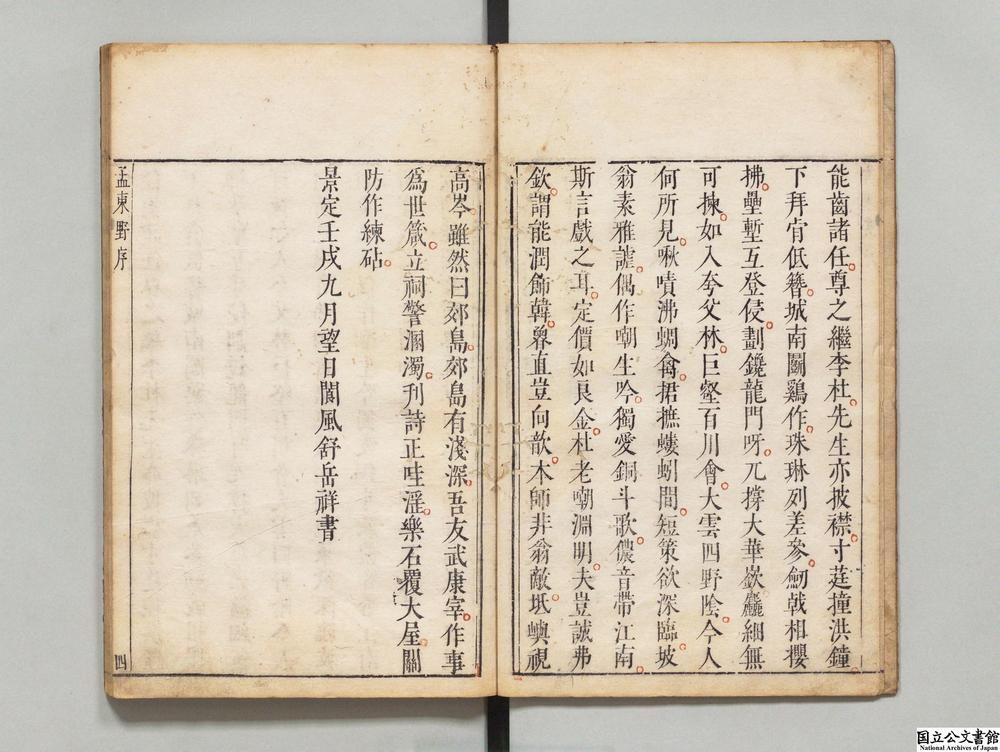 能齒諸任尊之繼李杜先生亦披襟寸莛撞洪鐘
下拜肎低簪城南鬭鷄作珠琳列差參劒戟相攖
拂壘塹互登侵劃鑱龍門呀兀撐大華嶔麤細無
可揀如入夸父林巨壑百川會大雲四野陰今人
何所見啾嘖沸蜩禽捃摭螻蚓間短策欲深臨坡
翁素雅謔偶作嘲生吟獨愛銅斗歌儂音帶江南
斯言戲之耳定價如良金杜老嘲淵明夫豈誠弗
欽謂能潤飾韓曾直豈向歆木師非翁敵坻嶼視
高岑雖然曰郊島郊島有淺深吾友武康宰作事
爲世箴立祠警溷濁刋詩正哇淫樂石覆大屋關
防作練砧
景定壬戌九月望日閬風舒岳祥書
孟東野序
四
国立公文書館
National Archives of Japan